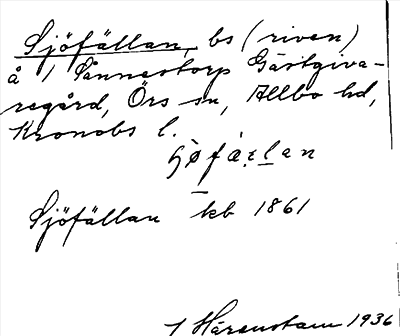 Sjöfällan, bs (riven)
å 1 Sånnestorp Gästgiva-
regård, Örs sn, Allbo hd,
Kronobs l.
Sjöfällan kb 1861
I Härenstam 1936